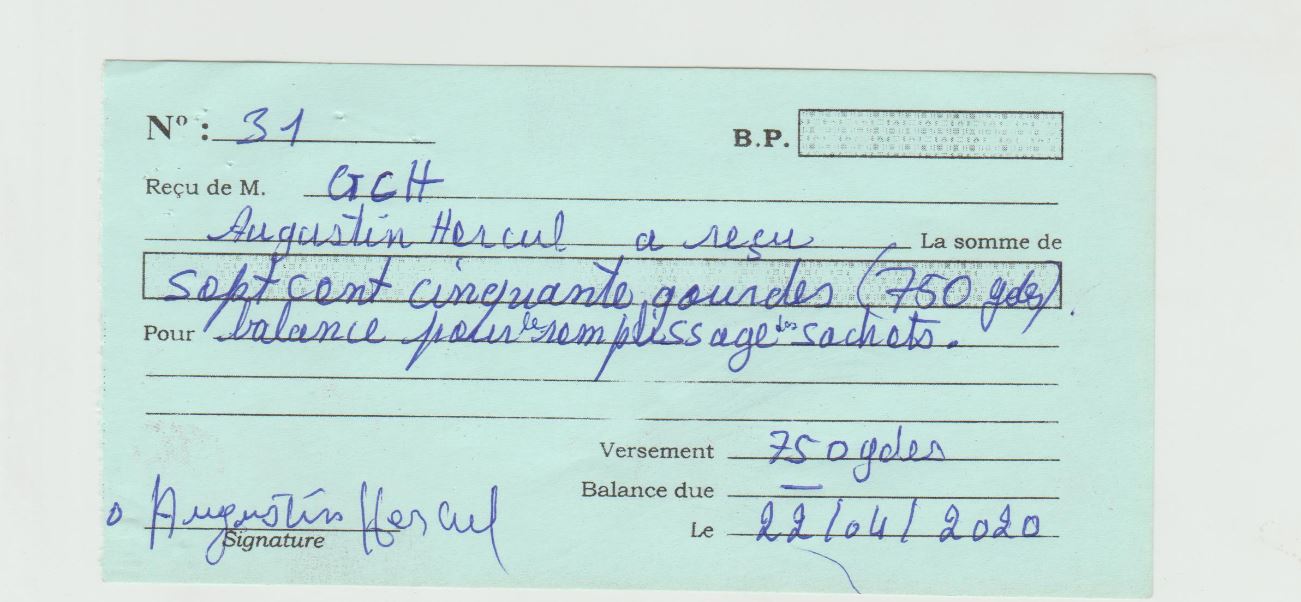 Nº : 31
B.P.
Reçu de M. GCH
Augustin Hercul a reçu La somme de
sept cent cinquante gourdes (750 gdes).
Pour balance pour le remplissage des sachets.
Versement 750 gdes
Balance due —
Augustin Hercul
Signature
Le 22/04/2020